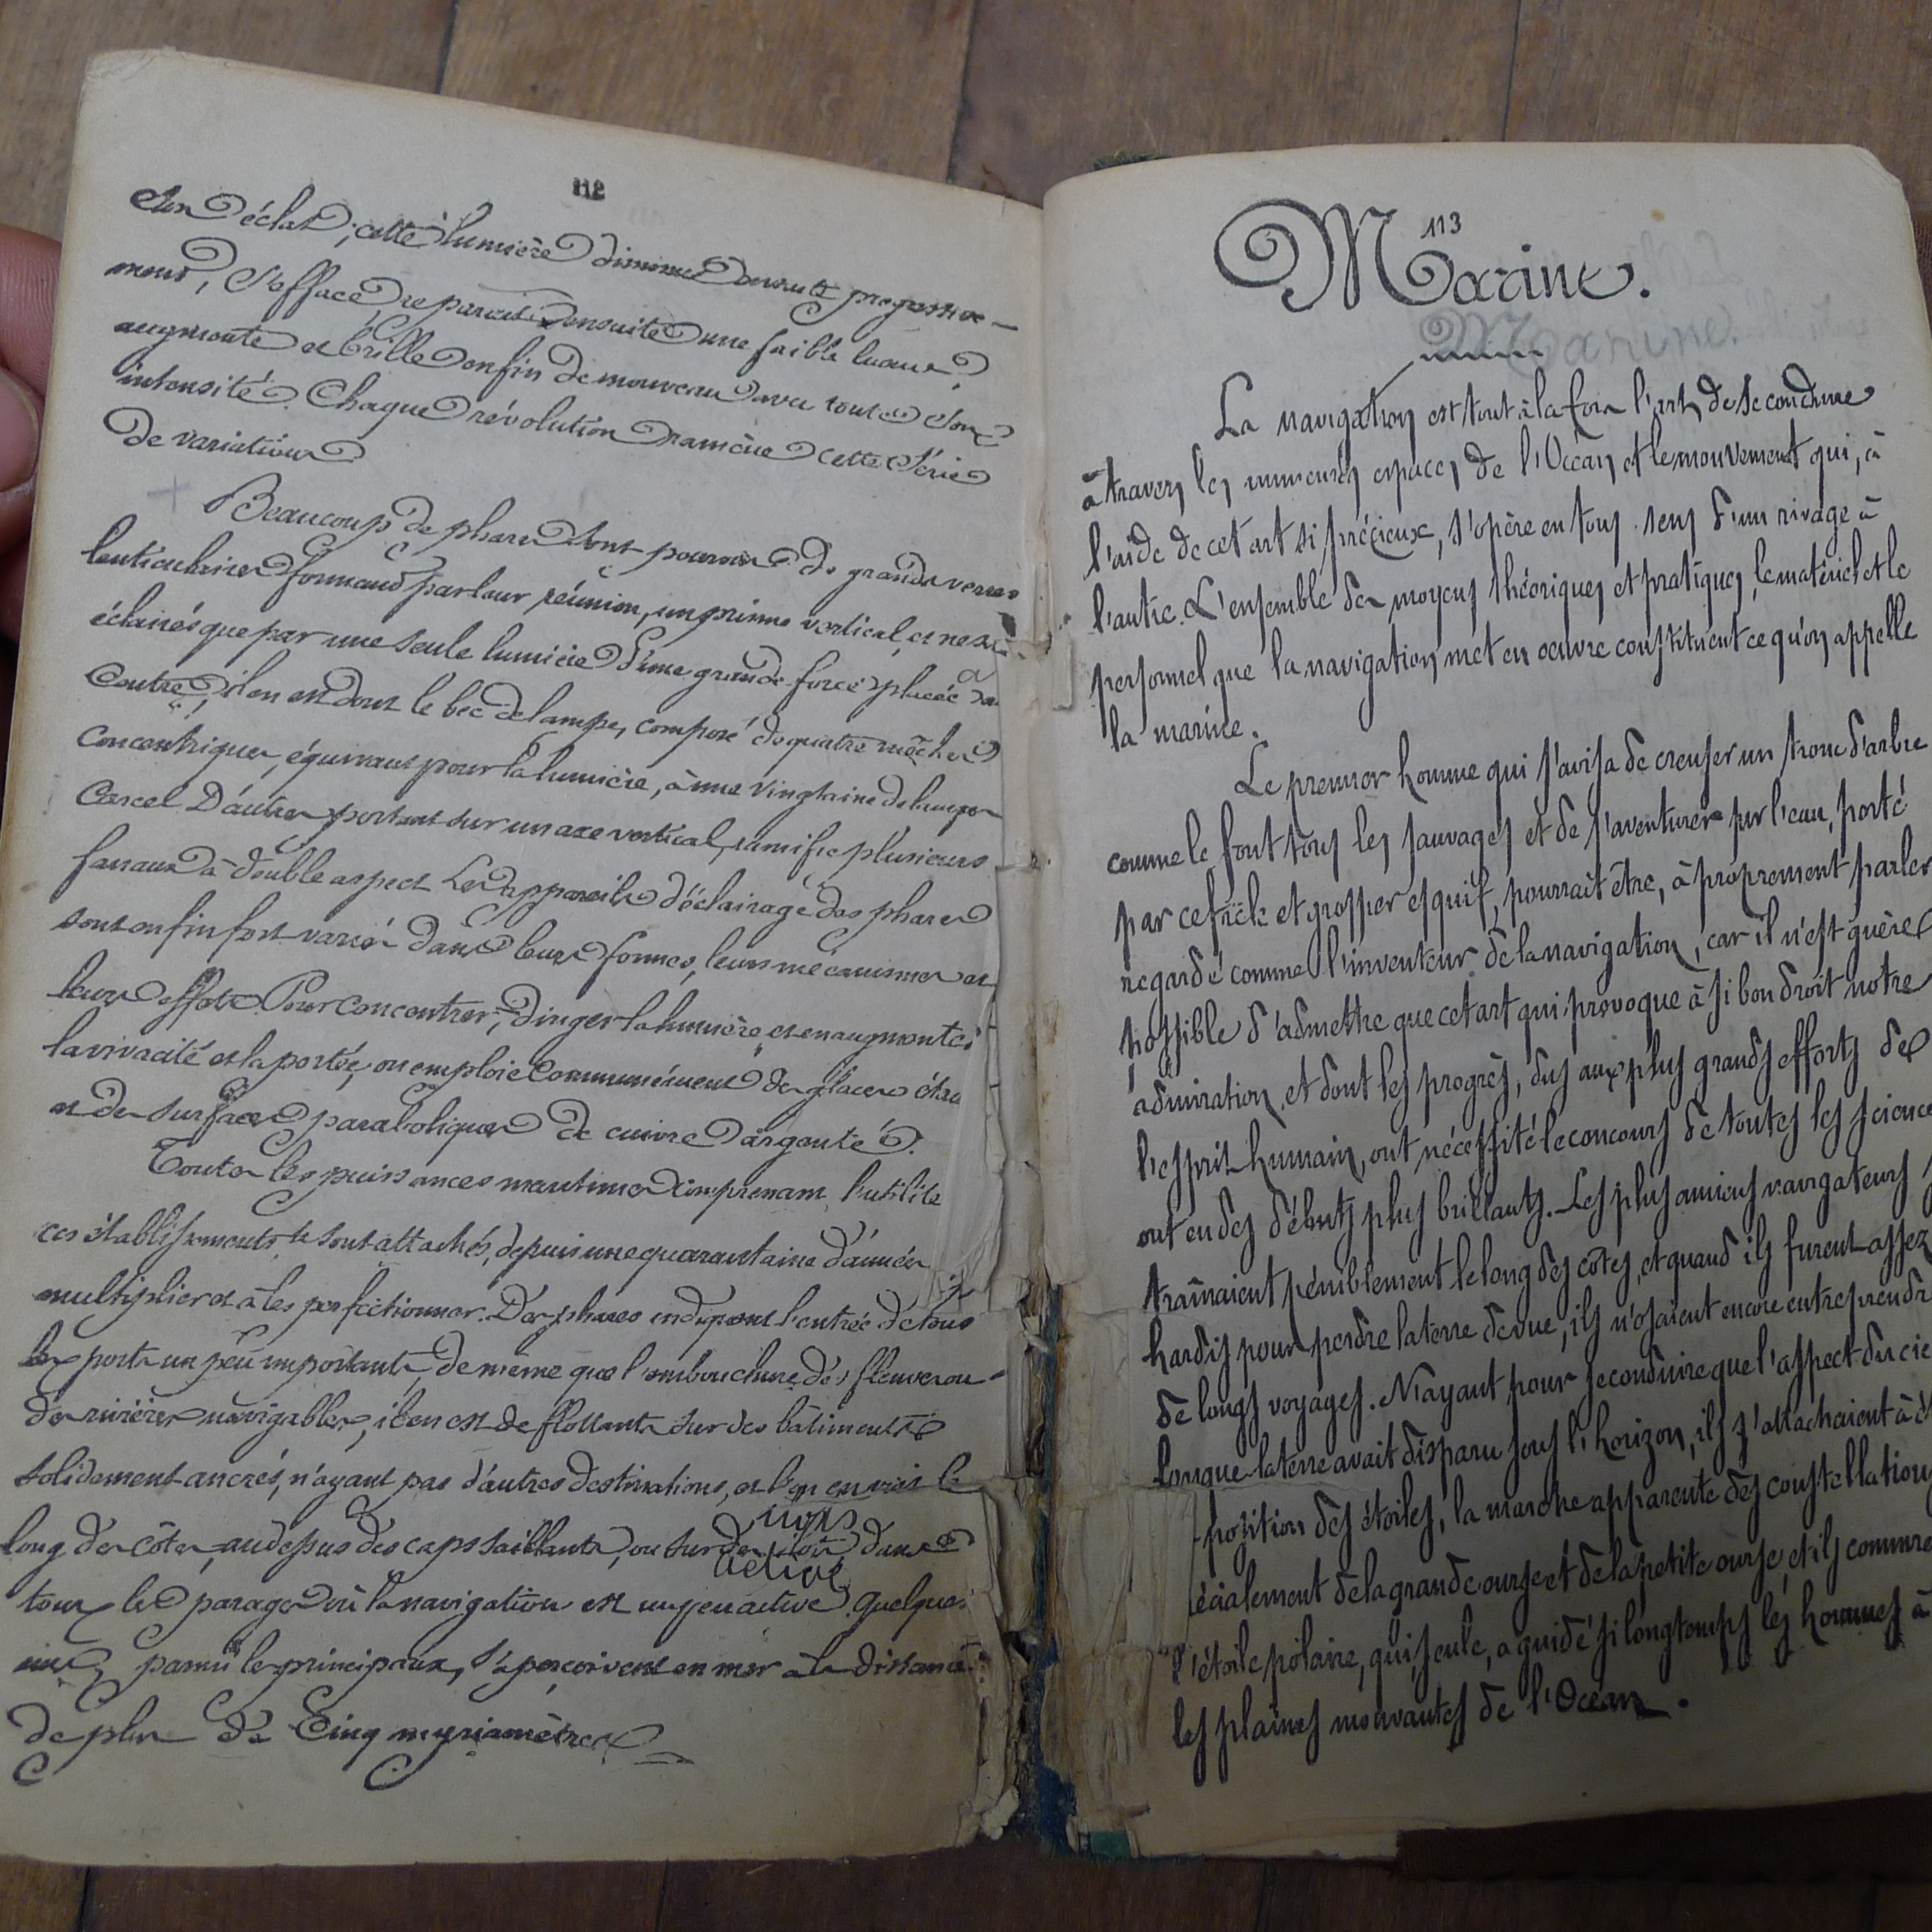 112
son éclat; cette lumière diminue ensuite progressive-
ment, s'efface, reparait ensuite une faible lueur,
augmente et brille enfin de nouveau avec toute son
intensité. Chaque révolution ramène cette série
de variations
Beaucoup de phares sont pourvus de grands verres
lenticulaires formant par leur réunion, un prisme vertical, et ne sont
éclairés que par une seule lumière d'une grande force placée au
centre, il en est dont le bec de lampe, composé de quatre mèches
concentriques, équivaut pour la lumière, à une vingtaine de lampes
Carcel D'autres portent sur un axe vertical, ramifié plusieurs
fanaux à double aspect Les appareils d'éclairage des phares
sont enfin fort variés dans leurs formes, leurs mécanismes et
leurs effets. Pour concentrer, diriger la lumière, et en augmenter
la vivacité et la portée, on emploie communément des glaces
et des surfaces paraboliques de cuivre argenté.
Toutes les puissances maritimes comprenant l'utilité
ces établissements se sont attachés, depuis une quarantaine d'années
multiplier et à les perfectionner. Des phares indiquent l'entrée de tous
les ports un peu importants, de même que l'embouchure des fleuves ou
des rivières navigables, il en est de flottants sur des bâtiments
solidement ancrés, n'ayant pas d'autres destinations, et l'on en voit le
long des côtes, au dessus des caps saillants, ou sur des dans
tous les parages où la navigation est un peu active. Quelques
uns parmi les principaux, s'aperçoivent en mer à la distance
de plus de Cinq myriamètres
113
Marine.
La navigation est tout à la fois l'art de se conduire
à travers les immenses espaces de l'Océan et le mouvement qui, à
l'aide de cet art si précieux, s'opère en tous sens d'un rivage à
l'autre. L'ensemble des moyens théoriques et pratiques, le matériel et le
personnel que la navigation met en œuvre constituent ce qu'on appelle
la marine.
Le premier homme qui s'avisa de creuser un tronc d'arbre
comme le font tous les sauvages et de s'aventurer sur l'eau, porté
par ce frêle et grossier esquif, pourrait être, à proprement parler
regardé comme l'inventeur de la navigation, car il n'est guère
possible d'admettre que cet art qui provoque à si bon droit notre
admiration, et dont les progrès, dus aux plus grands efforts de
l'esprit humain, ont nécessité le concours de toutes les science
ont eu des débuts plus brillants. Les plus anciens navigateurs
traînaient péniblement le long des côtes, et quand ils furent assez
hardis pour perdre la terre de vue, ils n'osaient encore entreprendre
de longs voyages. N'ayant pour se conduire que l'aspect du cie
lorsque la terre avait disparu sous l'horizon, ils s'attachaient à
position des étoiles, la marche apparente des constellations
écialement de la grande ourse et de la petite ourse, et ils
l'étoile polaire, qui, seule, a guidé si longtemps les hommes à
les plaines mouvantes de l'Océan.